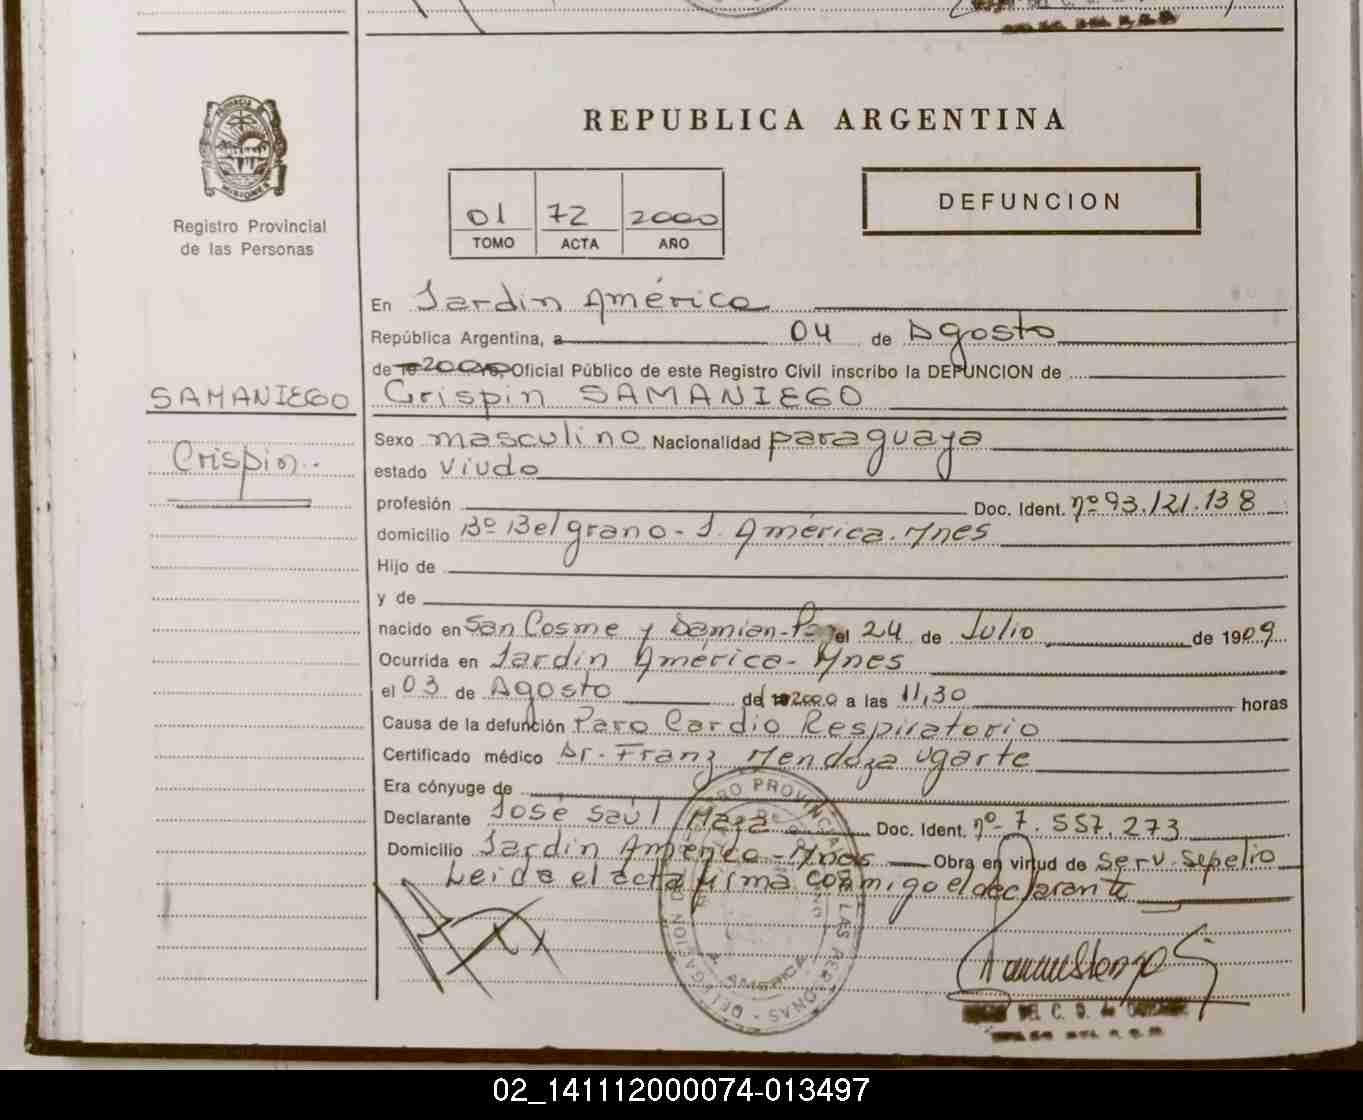 REPUBLICA ARGENTINA
PROVINCIA DE
MISIONES
Registro Provincial
de las Personas
01 72 2000
TOMO ACTA AÑO
DEFUNCION
En Jardin América
República Argentina, a 04 de Agosto
de 2000, Oficial Público de este Registro Civil inscribo la DEFUNCION de
SAMANIEGO
Crispin SAMANIEGO
Crispin.-
Sexo masculino Nacionalidad paraguaya
estado viudo
profesión Doc. Ident. nº 93.121.138
domicilio Bº Belgrano - J. América. Mnes
Hijo de
y de
nacido en San Cosme y Damian - el 24 de Julio de 1909.
Ocurrida en Jardin América - Mnes
el 03 de Agosto de 2000 a las 11,30 horas
Causa de la defunción Paro Cardio Respiratorio
Certificado médico Dr. Franz Mendoza Ugarte
Era cónyuge de
Declarante José Saúl Doc. Ident. nº 7.557.273
Domicilio Jardin América - Mnes Obra en virtud de Serv. Sepelio
Leida el acta firma conmigo el declarante
DELEGACION PROVINCIAL LAS PERSONAS
AMERICA
DEL C. D. de
02_141112000074-013497